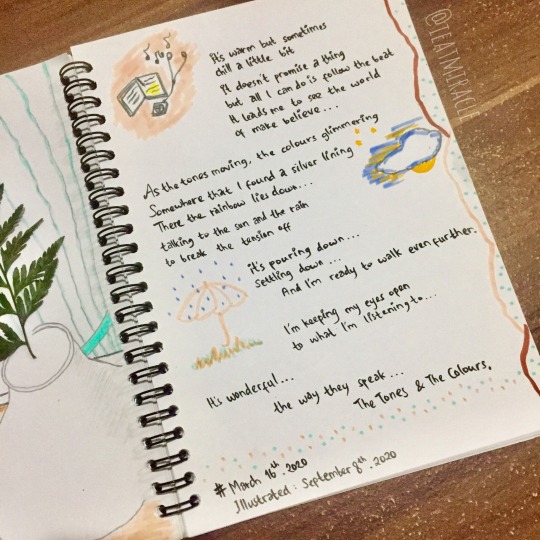 It's warm but sometimes
chill a little bit
It doesn't promise a thing
but all I can do is follow the beat
It leads me to see the world
of make believe....
As the tones moving, the colours glimmering
Somewhere that I found a silver lining
There the rainbow lies down...
talking to the sun and the rain
to break the tension off
it's pouring down...
settling down...
And I'm ready to walk even further.
I'm keeping my eyes open
to what I'm listening to...
It's wonderful...
the way they speak...
The Tones & The Colours.
# March 16th. 2020
Illustrated: September 8th. 2020
@TEATMIRACLE